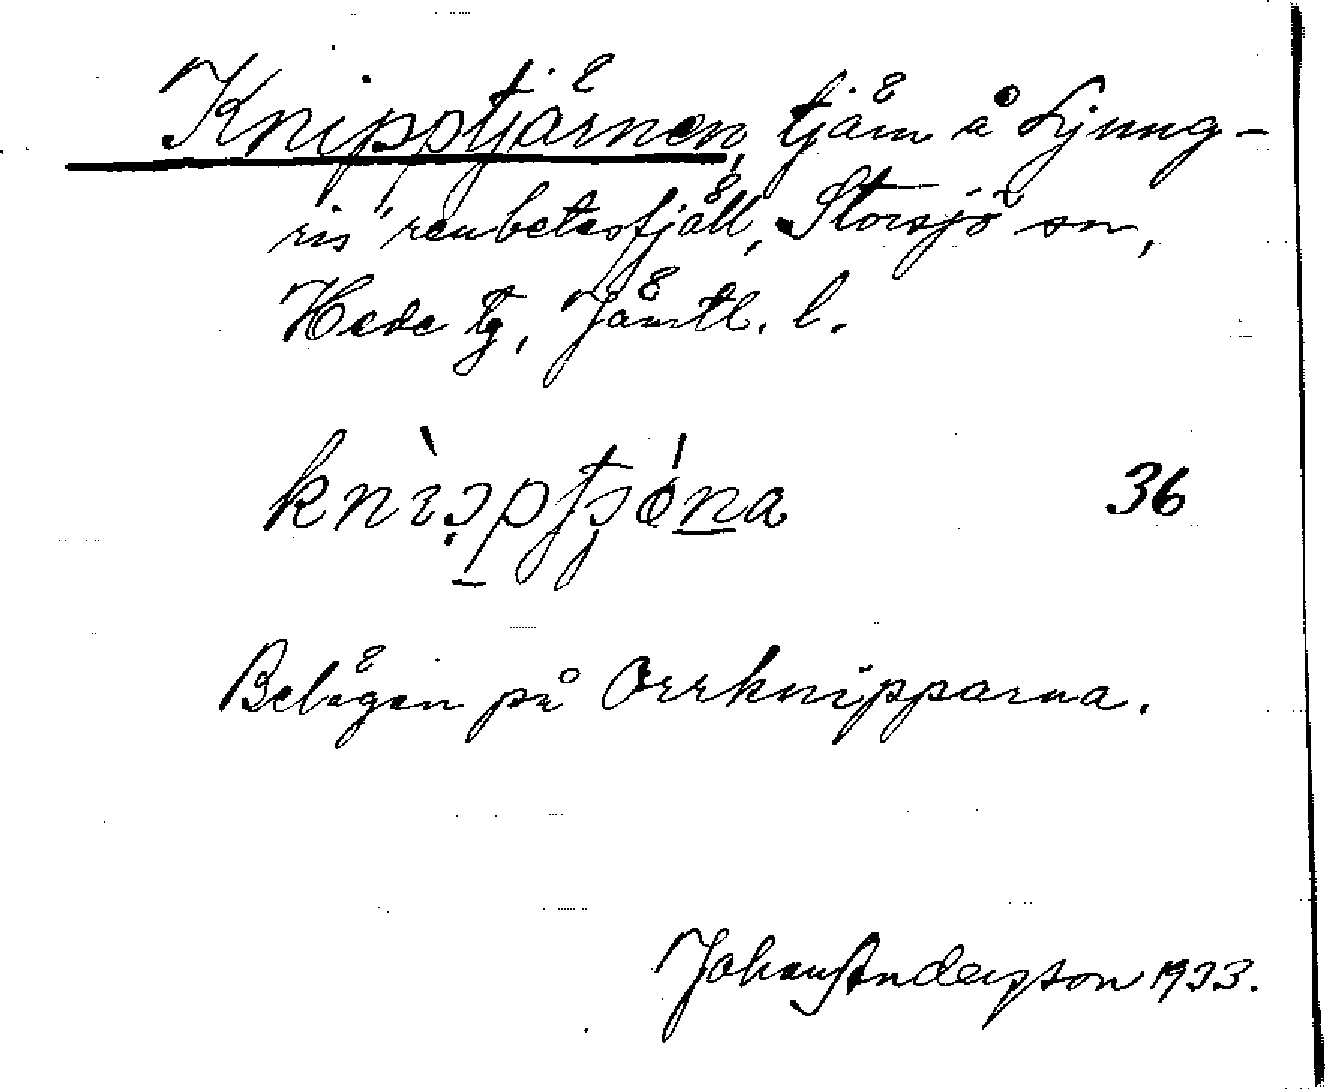 Knipptjärnen, tjärn å Ljung-
ris renbetesfjäll, Storsjö sn,
Hede tg, Jämtl. l.
36
Belägen på Orrknipparna.
Johan Anderson 1933.